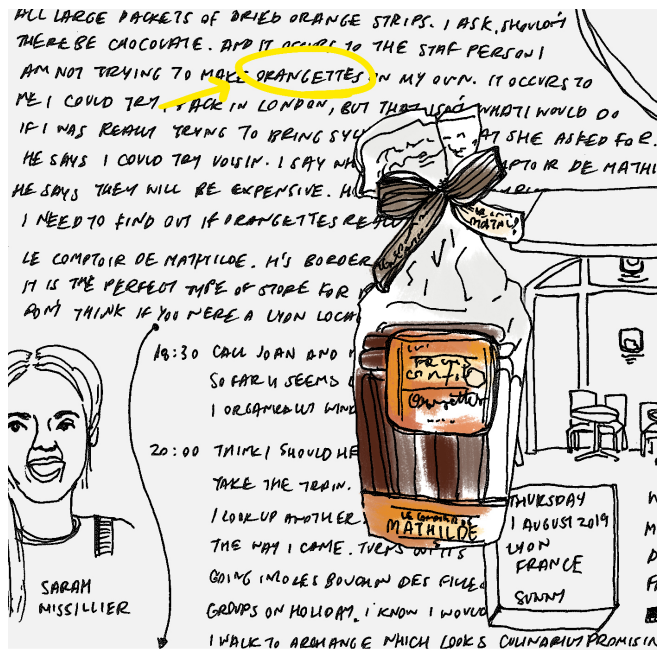 ALL LARGE PACKETS OF DRIED ORANGE STRIPS. I ASK, SHOULDN'T
THERE BE CHOCOLATE. AND IT OCCURS TO THE STAF PERSON I
AM NOT TRYING TO MAKE ORANGETTES ON MY OWN. IT OCCURS TO
ME I COULD TRY, BACK IN LONDON, BUT THAT ISN'T WHAT I WOULD DO
IF I WAS REALLY TRYING TO BRING SYL AT SHE ASKED FOR.
HE SAYS I COULD TRY VOISIN. I SAY WH PTOIR DE MATHI
HE SAYS THEY WILL BE EXPENSIVE. H
I NEED TO FIND OUT IF ORANGETTES REAL
LE COMPTOIR DE MATHILDE. IT'S BORDER
IT IS THE PERFECT TYPE OF STORE FOR
DON'T THINK IF YOU WERE A LYON LOCA
18:30 CALL JOAN AND
SO FAR IT SEEMS
I ORGANICALLY WIND
20:00 THINK I SHOULD HE
TAKE THE TRAIN.
I LOOK UP ANOTHER
THE WAY I CAME. TURNS OUT IT'S
GOING
GROUPS ON HOLIDAY. I KNOW I WOULD
I WALK TO ARCHANGE WHICH LOOKS CULINARILY PROMISIN
MATHILDE
FRUITS
CONFITS
Orangettes
LE COMPTOIR DE
MATHILDE
THURSDAY
1 AUGUST 2019
LYON
FRANCE
SUNNY
SARAH
MISSILLIER